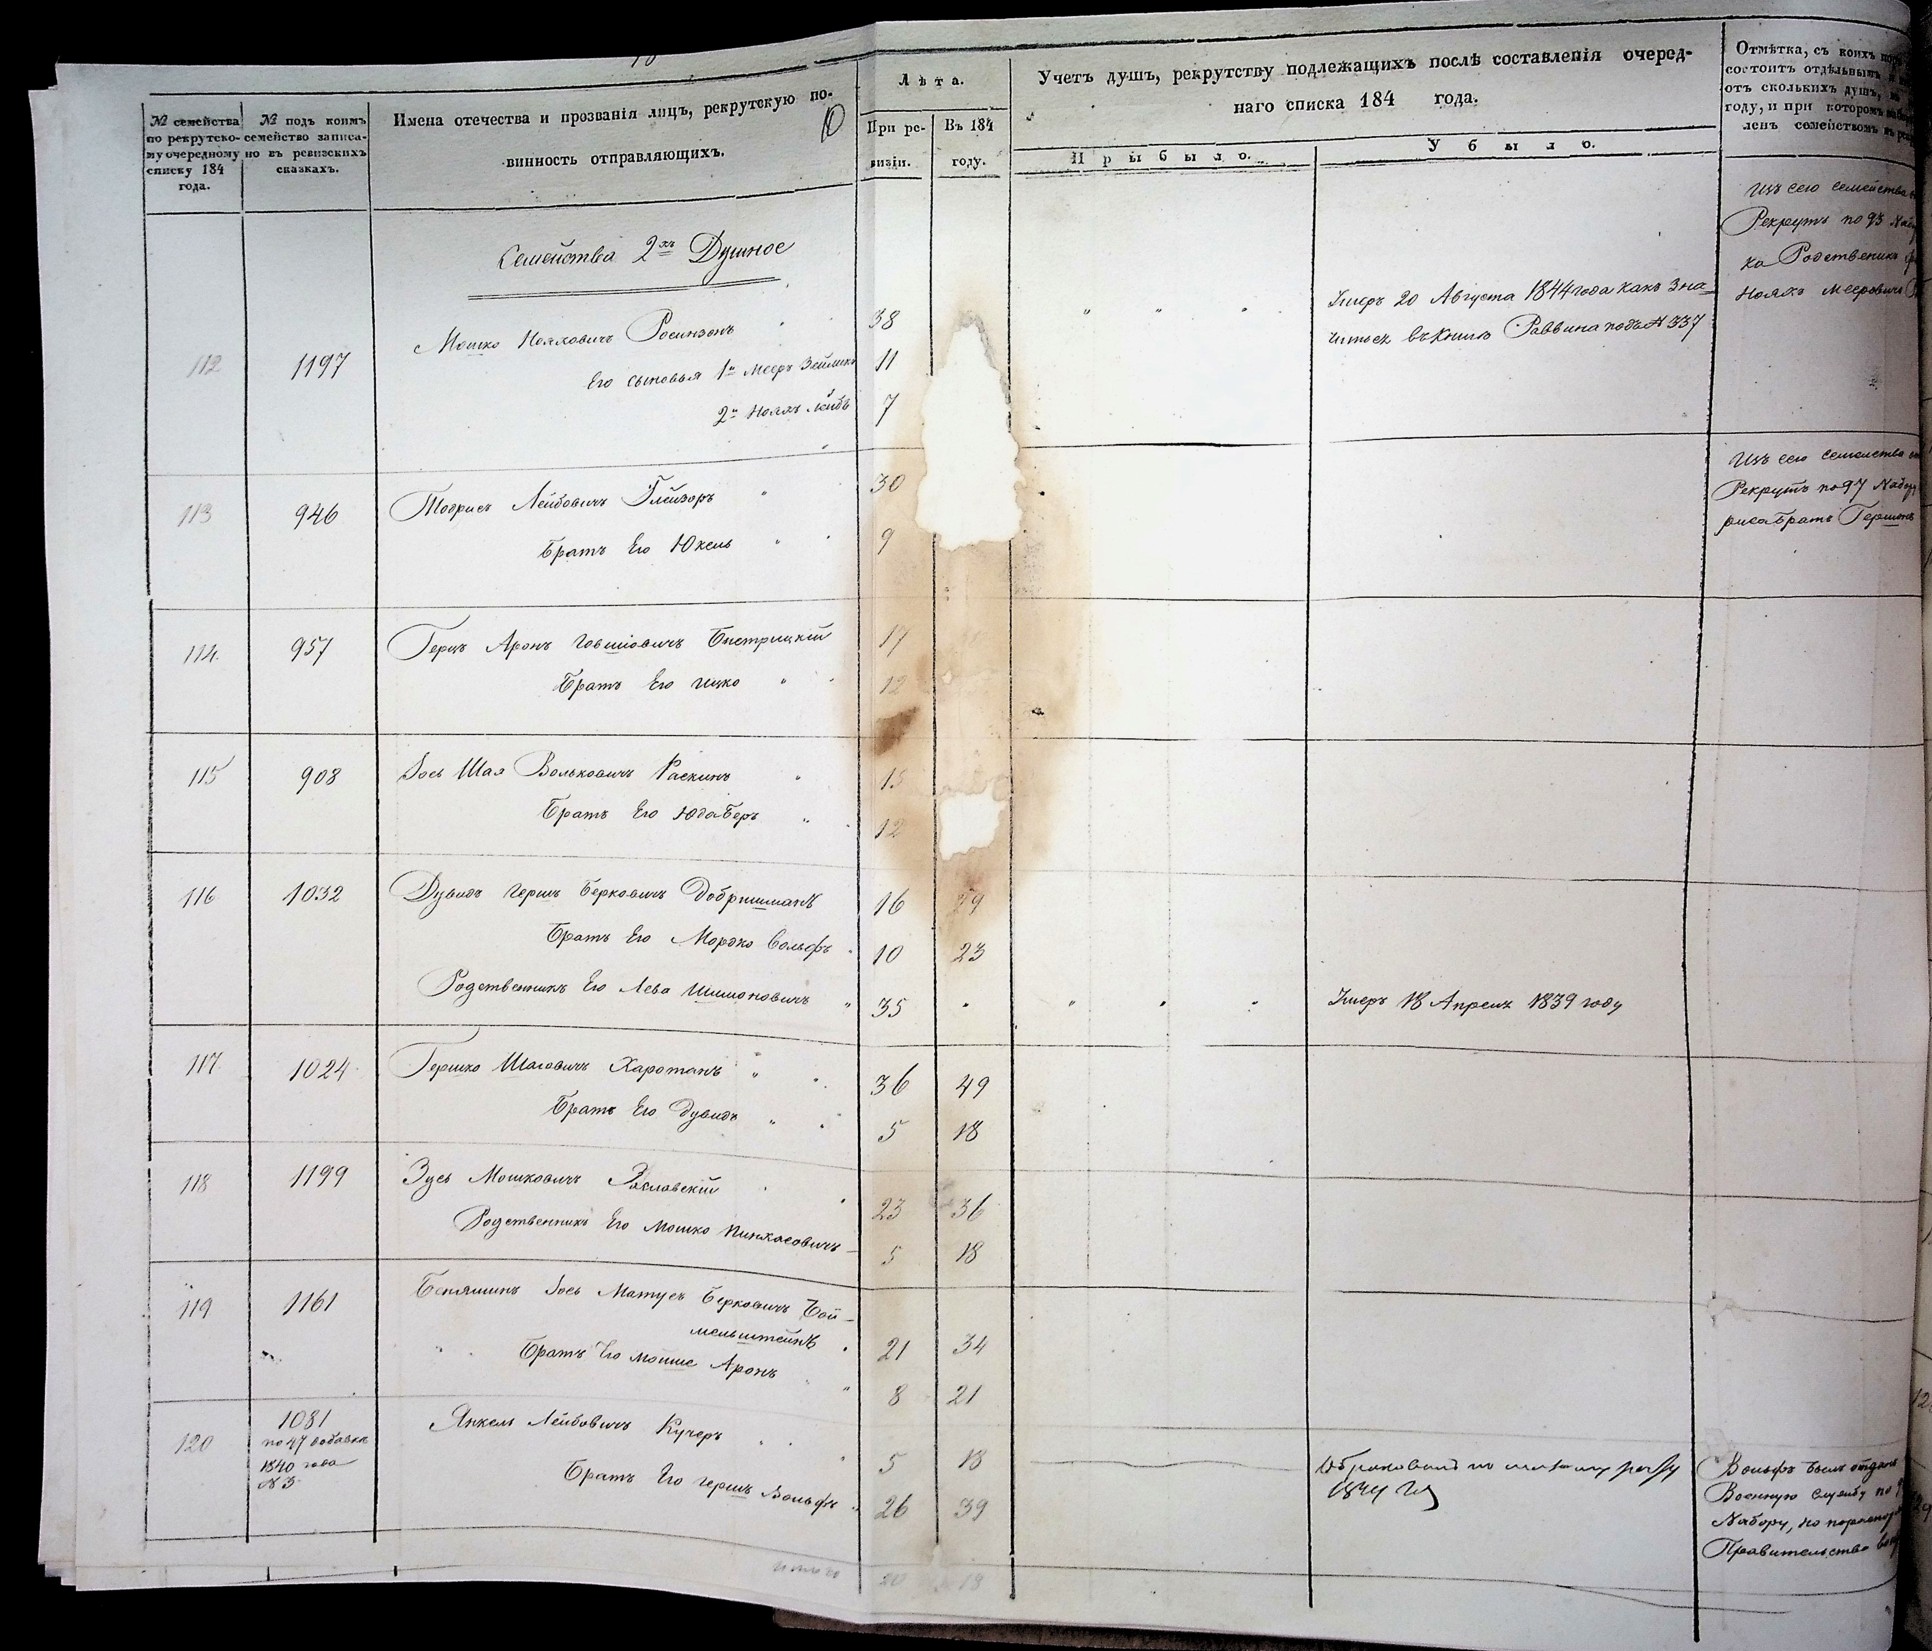 № семейства по рекрутскому очередному списку 184 года.
№ подъ коимъ семейство записано въ ревизскихъ сказкахъ.
Имена отечества и прозванія лицъ, рекрутскую повинность отправляющихъ.
10
Лѣта.
При ревизіи.
Въ 184 году.
Учетъ душъ, рекрутству подлежащихъ послѣ составленія очереднаго списка 184 года.
Прибыло.
Убыло.
Отмѣтка, съ коихъ
состоитъ отдѣльнымъ
отъ сколькихъ душъ,
году, и при которомъ
ленъ семействомъ
Семейства 2хъ Душное
112 1197 Мошко Нояховичъ 38
Его сыновья 1й Мееръ 11
2й Нояхъ Лейбъ 7
Умеръ 20 Августа 1844 года какъ зна-
читься въ книгѣ Раввина подъ № 337
Изъ сего семейства
Рекрутъ по 93
ка Родственикъ
Нояхъ Мееровичъ
113 946 Тодрисъ Лейбовичъ Глейзеръ 30
Братъ Его Юкель 9
Изъ сего семейства
Рекрутъ по 97
риса братъ Гершонъ
114 957 Герцъ Аронъ Говшіовичъ Быстрицкій 17
Братъ Его Ицко 12
115 908 Іось Шая Вольковичъ Раскинъ 15
Братъ Его Юда Беръ 12
116 1032 Дувидъ Гершъ Берковичъ Добришманъ 16 29
Братъ Его Мордко Вольфъ 10 23
Родственникъ Его Лева Шимоновичъ 35
Умеръ 18 Апреля 1839 году
117 1024 Гершко Шаговичъ Харотанъ 36 49
Братъ Его Дувидъ 5 18
118 1199 Зусь Мошковичъ Рославскій 23 36
Родственникъ Его Мошко Пинхасовичъ 5 18
119 1161 Беніяминъ Іось Матусъ Берковичъ Бой-
мельштейнъ 21 34
Братъ Его Мовше Аронъ 8 21
120 1081 Янкель Лейбовичъ Кучеръ 5 18
по 47 добавке
1840 года
№ 3
Братъ Его Гершъ Вольфъ 26 39
1844
Вольфъ былъ отданъ
Военную службу по
Набору, но
Правительства
итого 20 18